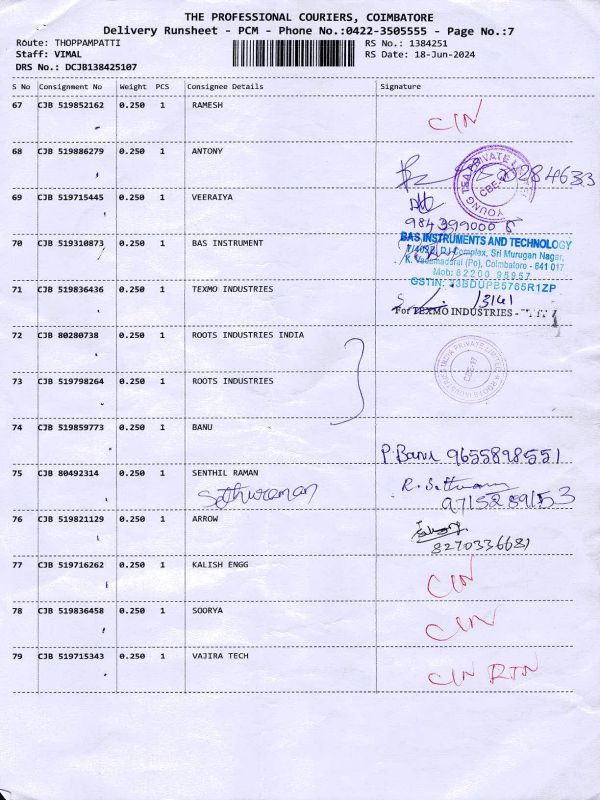 THE PROFESSIONAL COURIERS, COIMBATORE
Delivery Runsheet - PCM - Phone No.:0422-3505555 - Page No.:7
Route: THOPPAMPATTI RS No.: 1384251
Staff: VIMAL RS Date: 18-Jun-2024
DRS No.: DCJB138425107
S No Consignment No Weight PCS Consignee Details Signature
67 CJB 519852162 0.250 1 RAMESH CIN
68 CJB 519886279 0.250 1 ANTONY
YOUNG INDIA PRIVATE LIMITED
CBE-17
69 CJB 519715445 0.250 1 VEERAIYA
70 CJB 519310873 0.250 1 BAS INSTRUMENT
BAS INSTRUMENTS AND TECHNOLOGY
Complex, Sri Murugan Nagar,
(Po), Coimbatore - 641 017
Mob: 82200 95957
GSTIN: 33BDUPB5765R1ZP
71 CJB 519836436 0.250 1 TEXMO INDUSTRIES
For TEXMO INDUSTRIES -
72 CJB 80280738 0.250 1 ROOTS INDUSTRIES INDIA
ROOTS INDUSTRIES INDIA PRIVATE LIMITED
CBE-17
73 CJB 519798264 0.250 1 ROOTS INDUSTRIES
74 CJB 519859773 0.250 1 BANU
P. Banu 9655898551
75 CJB 80492314 0.250 1 SENTHIL RAMAN
Sethuraman
9715289153
76 CJB 519821129 0.250 1 ARROW
8270336681
77 CJB 519716262 0.250 1 KALISH ENGG CIN
78 CJB 519836458 0.250 1 SOORYA CIN
79 CJB 519715343 0.250 1 VAJIRA TECH CIN RTN